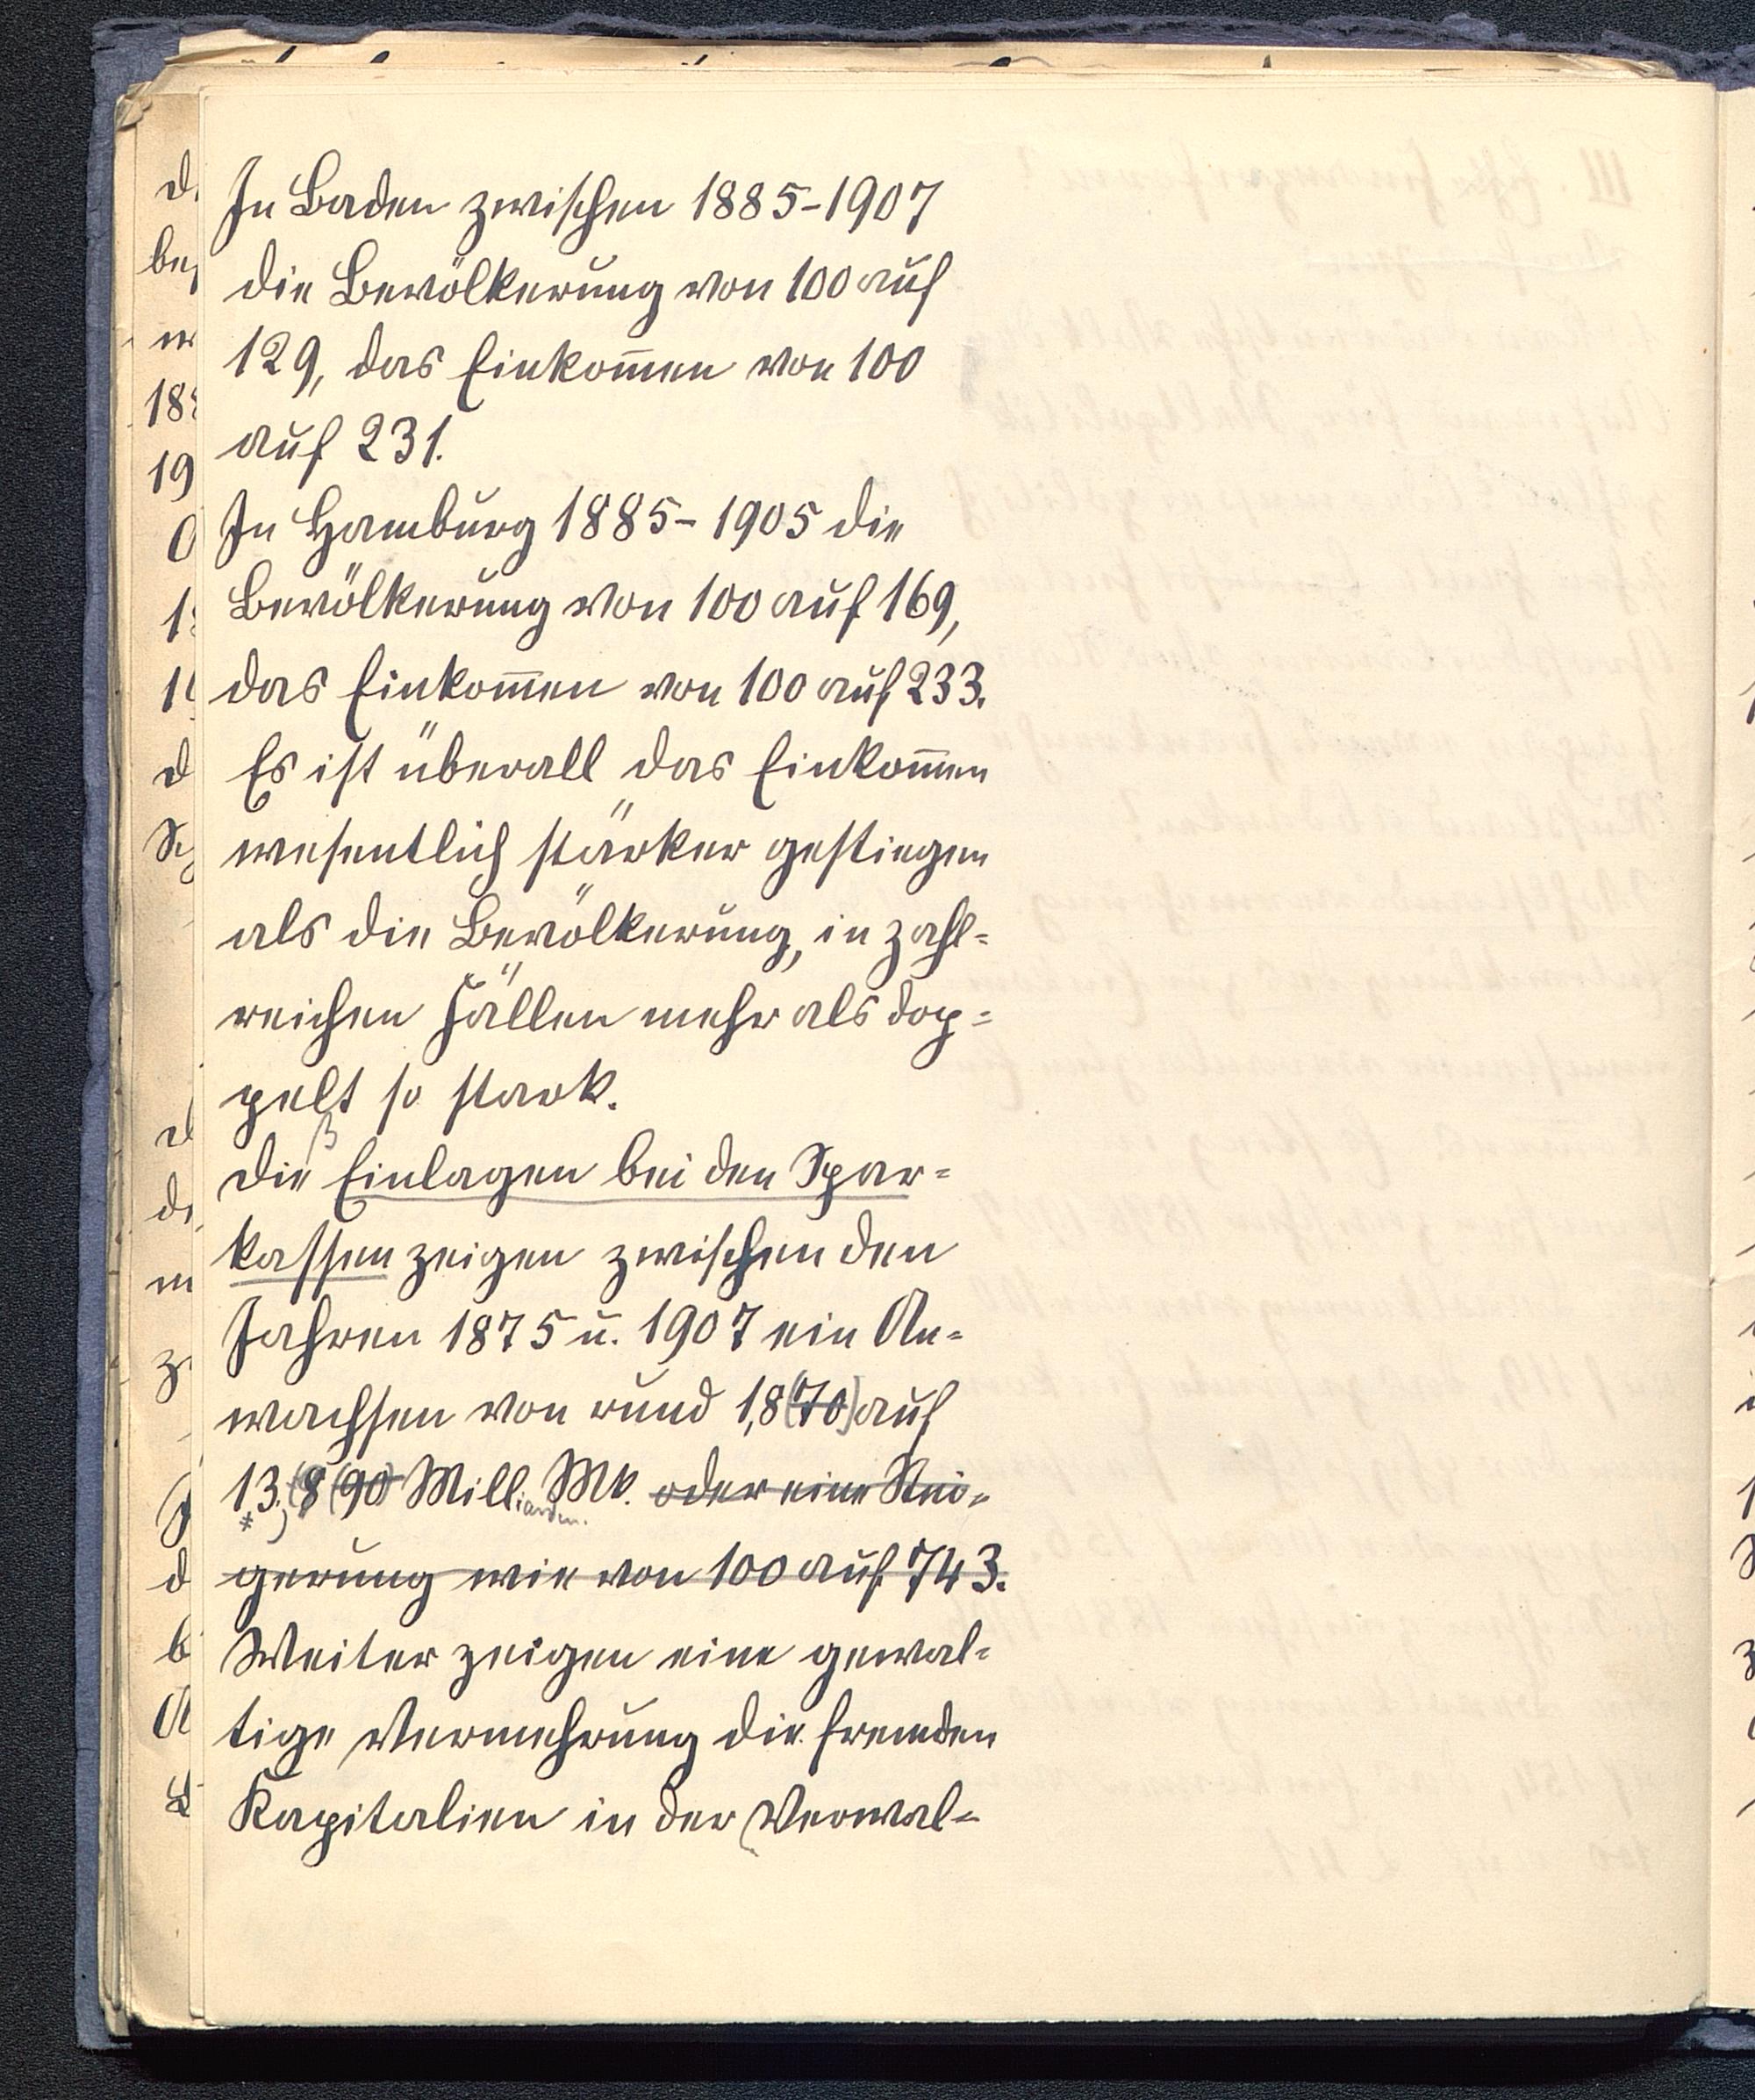 In Baden zwischen 1885-1907
die Bevölkerung von 100 auf
129, das Einkom̅en von 100
auf 231.
In Hamburg 1885-1905 die
Bevölkerung von 100 auf 169,
das Einkom̅en von 100 auf 233.
Es ist überall das Einkom̅en
wesentlich stärker gestiegen
als die Bevölkerung, in zahl=
reichen Fällen mehr als dop=
pelt so stark.
Die Einlagen bei den Spar=
kassen zeigen zwischen den
Jahren 1875 u. 1907 ein An=
wachsen von rund 1,8(70) auf
13,(8(90) Milliarden Mk. oder eine Stei=
gerung wie von 100 auf 743.
Weiter zeigen eine gewal=
tige Vermehrung die fremden
Kapitalien in der Verwal=